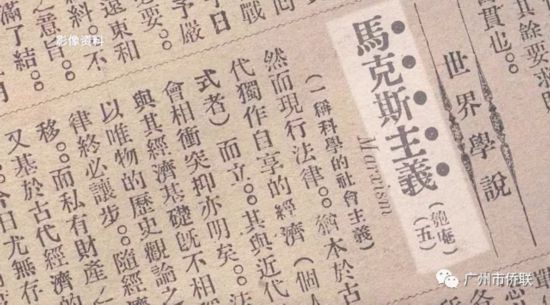 其餘要求
貫也。。
世界學說
馬克斯主義
Marxism
(匏庵)
(五)
(一稱科學的社會主義)
然而現行法律。。猶本於古
代獨作自享的經濟(個人
式者)而立。。其與近代
會相衝突抑亦明矣。。法
與其經濟基礎既不相
以唯物的歷史觀論之
律終必讓步。。隨經濟
移。。而私有財產之
又基於古代經濟的
今日尤無存
戰
予嚴
必要。。
遠東和
不
之意旨。。
滿了結。。
影像资料
广州市侨联